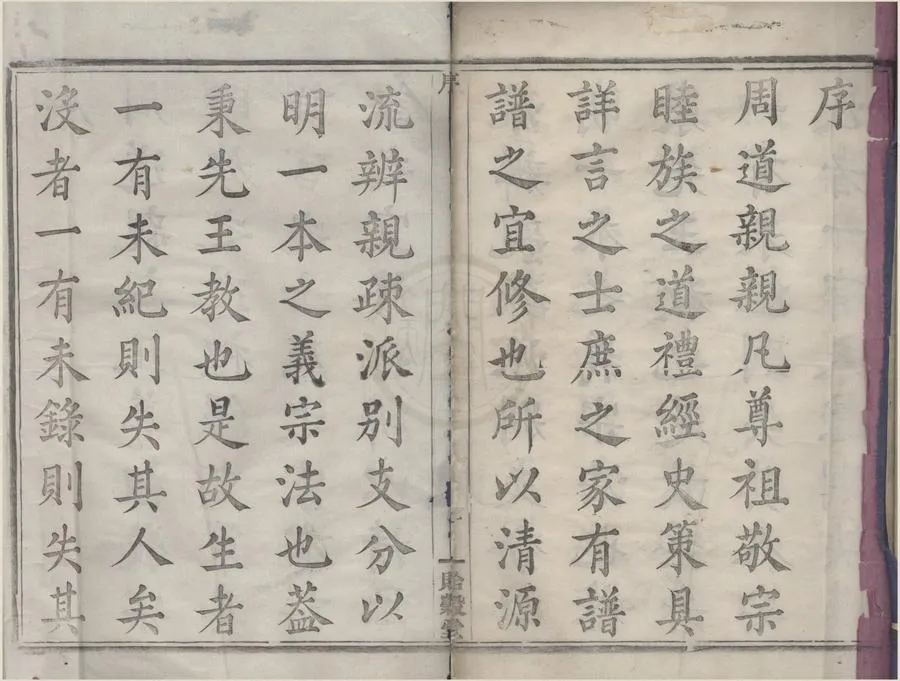 序
周道親親凡尊祖敬宗
睦族之道禮經史策具
詳言之士庶之家有譜
譜之宜修也所以清源
序
一
貽穀堂
流辨親疎派别支分以
明一本之義宗法也蓋
秉先王教也是故生者
一有未紀則失其人矣
沒者一有未錄則失其